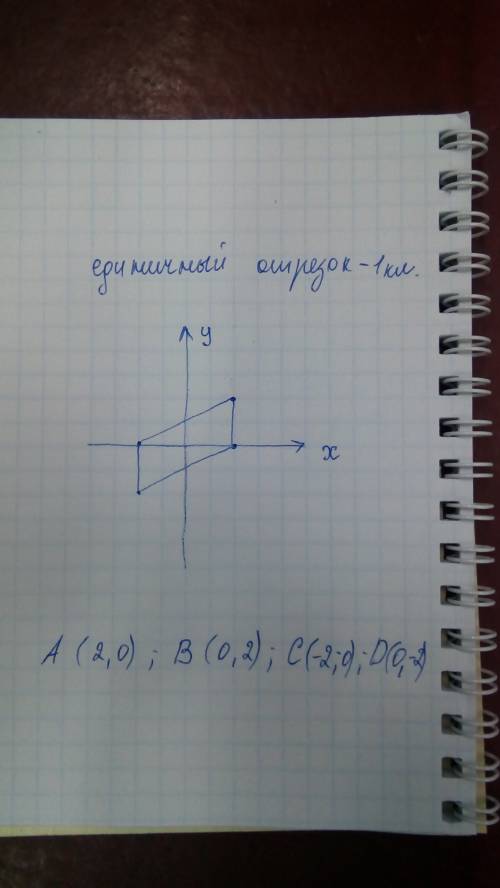 единичный отрезок - 1 кл.
y
x
A (2,0) ; B (0,2) ; C(-2;0) ; D(0,-2)